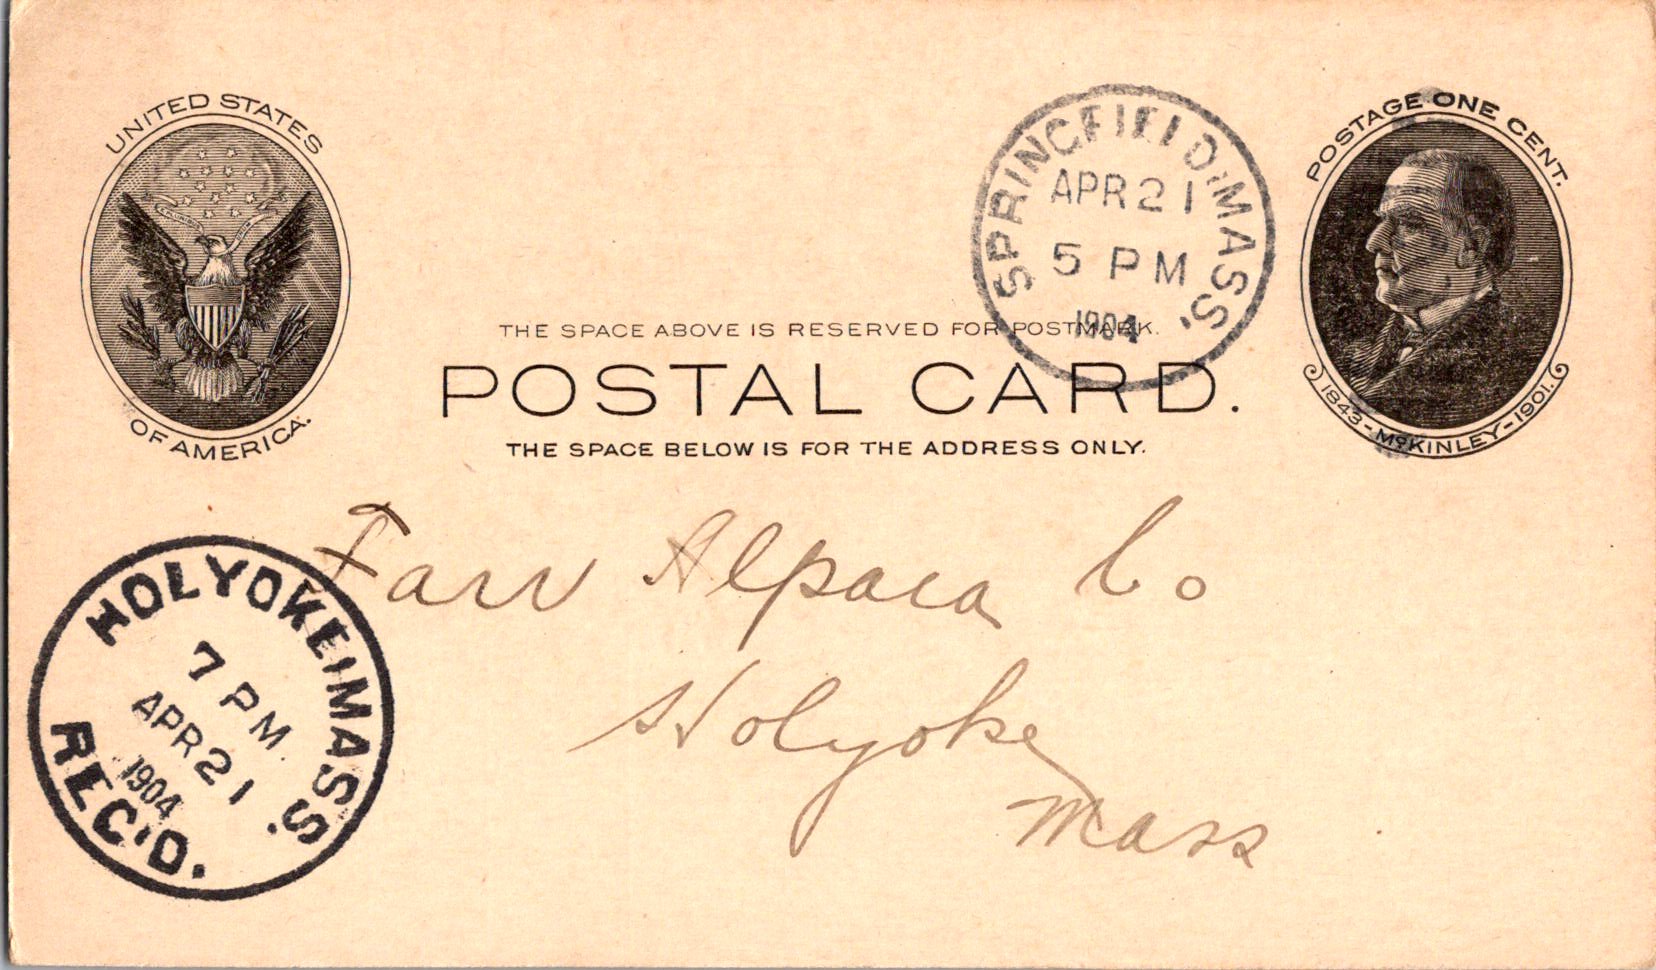 UNITED STATES
OF AMERICA.
SPRINGFIELD, MASS.
APR 21
5 PM
1904
POSTAGE ONE CENT.
1843-McKINLEY-1901.
THE SPACE ABOVE IS RESERVED FOR POSTMARK.
POSTAL CARD.
THE SPACE BELOW IS FOR THE ADDRESS ONLY.
Farr Alpaca Co
Holyoke
Mass
HOLYOKE, MASS.
7 PM.
APR 21
1904
REC'D.